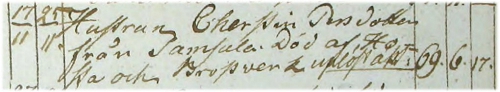 17 25 Hustrun Cherstin Persdotter
11 11. från Samsala. Död af Ho-
sta och Bröstverk 69. 6. 17.